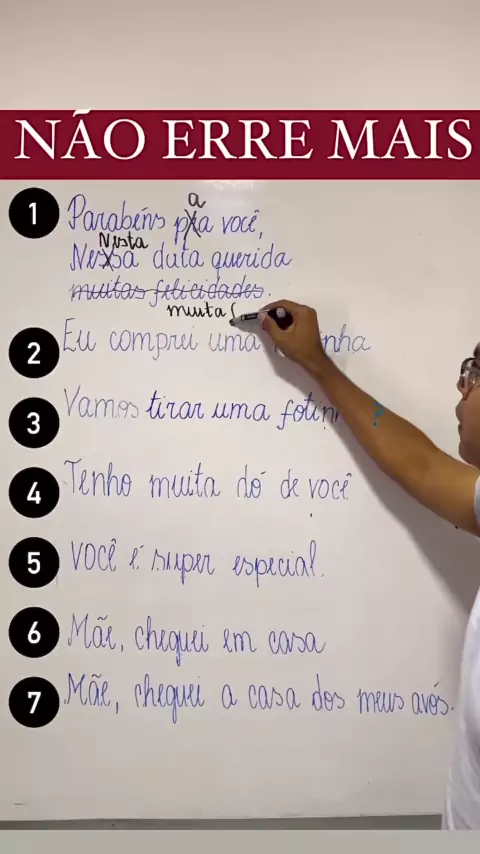 NÃO ERRE MAIS
1 Parabéns pra a você,
Nessa Nesta data querida
muitas felicidades.
muita
2 Eu comprei uma
3 Vamos tirar uma ?
4 Tenho muita dó de você
5 você é super especial.
6 Mãe, cheguei em casa
7 Mãe, cheguei a casa dos meus avós.